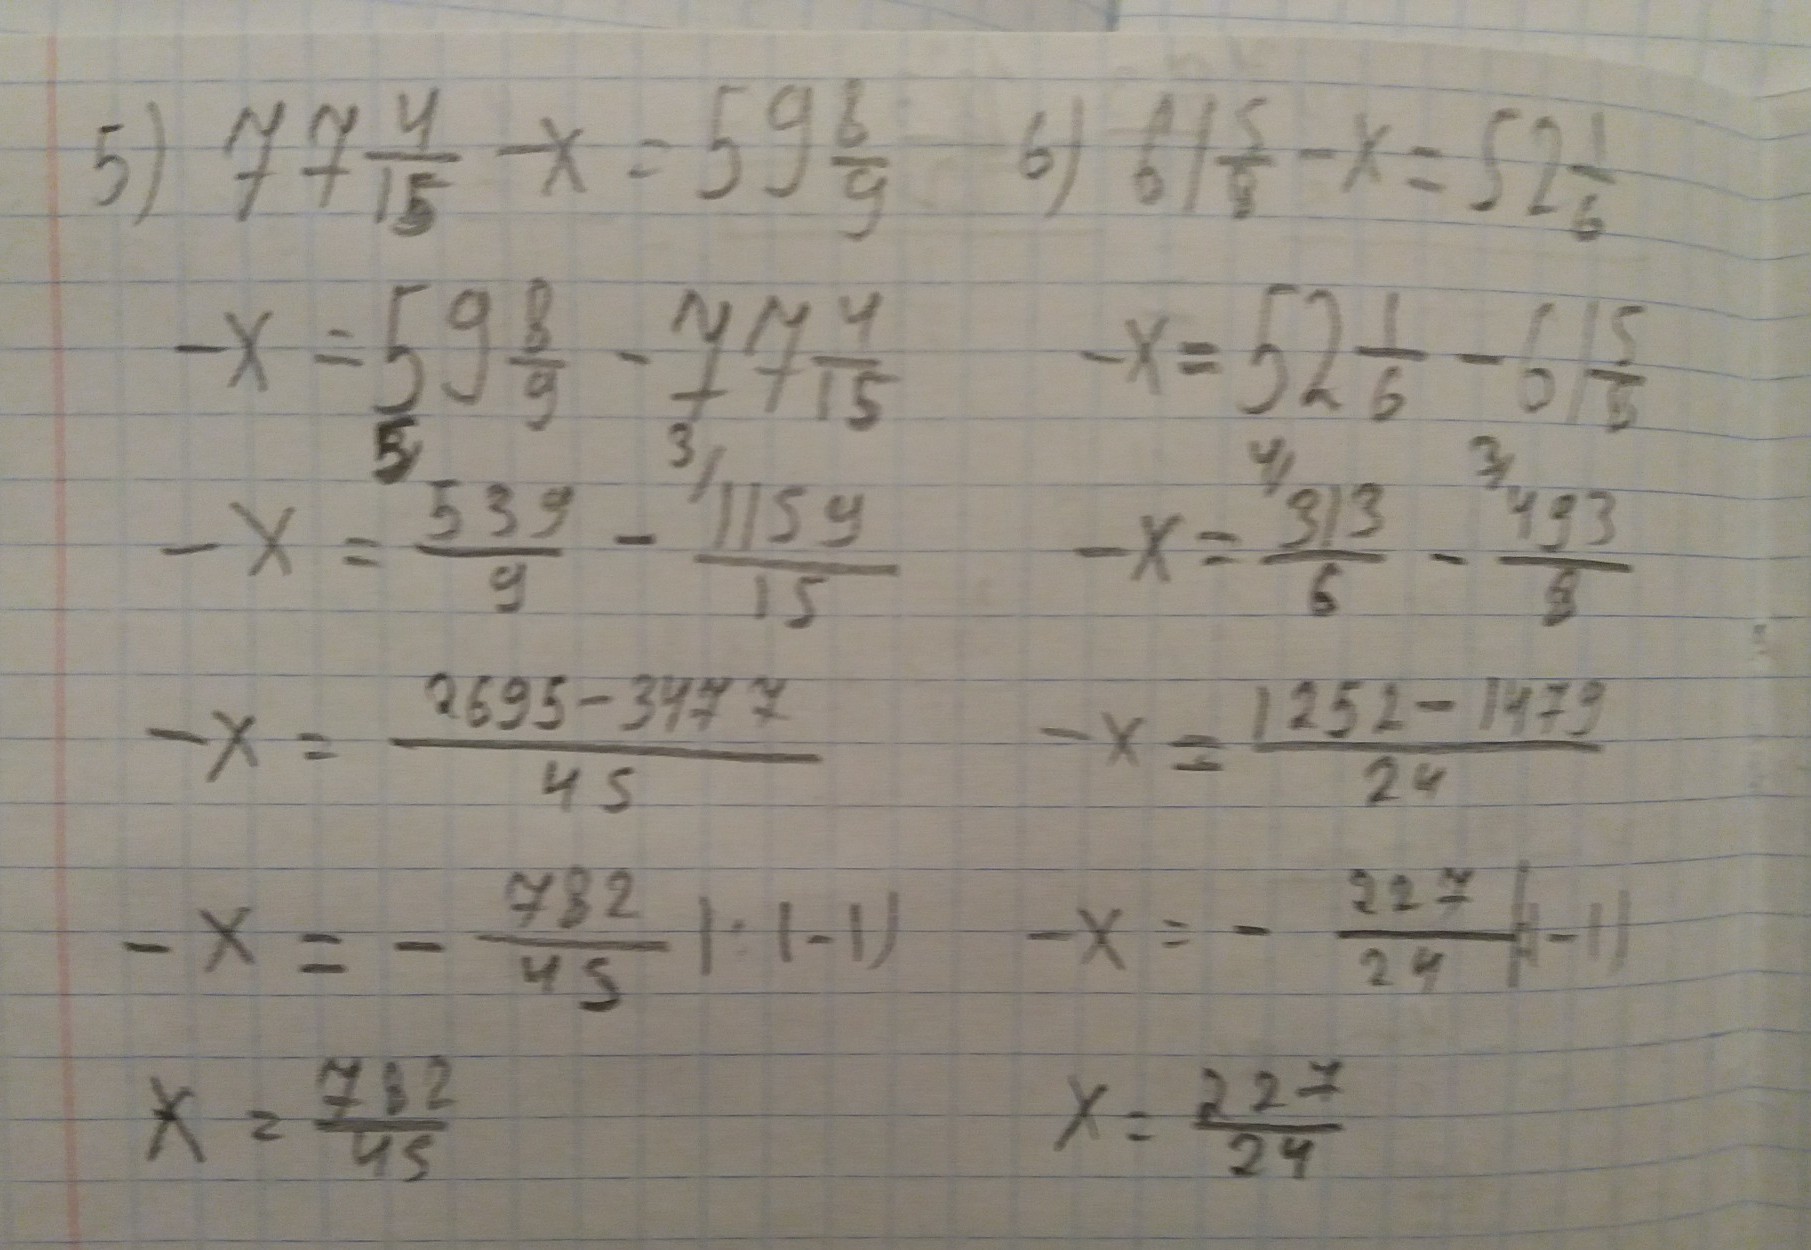 5) 77 4/15 - x = 59 8/9
-x = 59 8/9 - 77 4/15
-x = 5/ 539/9 - 3/ 1159/15
-x = (2695 - 3477)/45
-x = - 782/45 | : (-1)
x = 782/45
6) 61 5/8 - x = 52 1/6
-x = 52 1/6 - 61 5/8
-x = 4/ 313/6 - 3/ 493/8
-x = (1252 - 1479)/24
-x = - 227/24 | : (-1)
x = 227/24